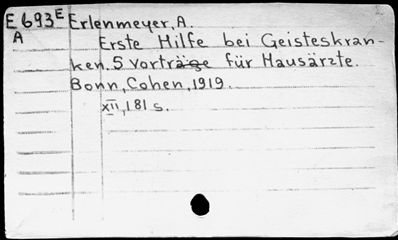 E693E Erlenmeyer, A.
A Erste Hilfe bei Geisteskran-
ken. 5 Vorträge für Hausärzte.
Bonn, Cohen, 1919.
XII, 181 s.